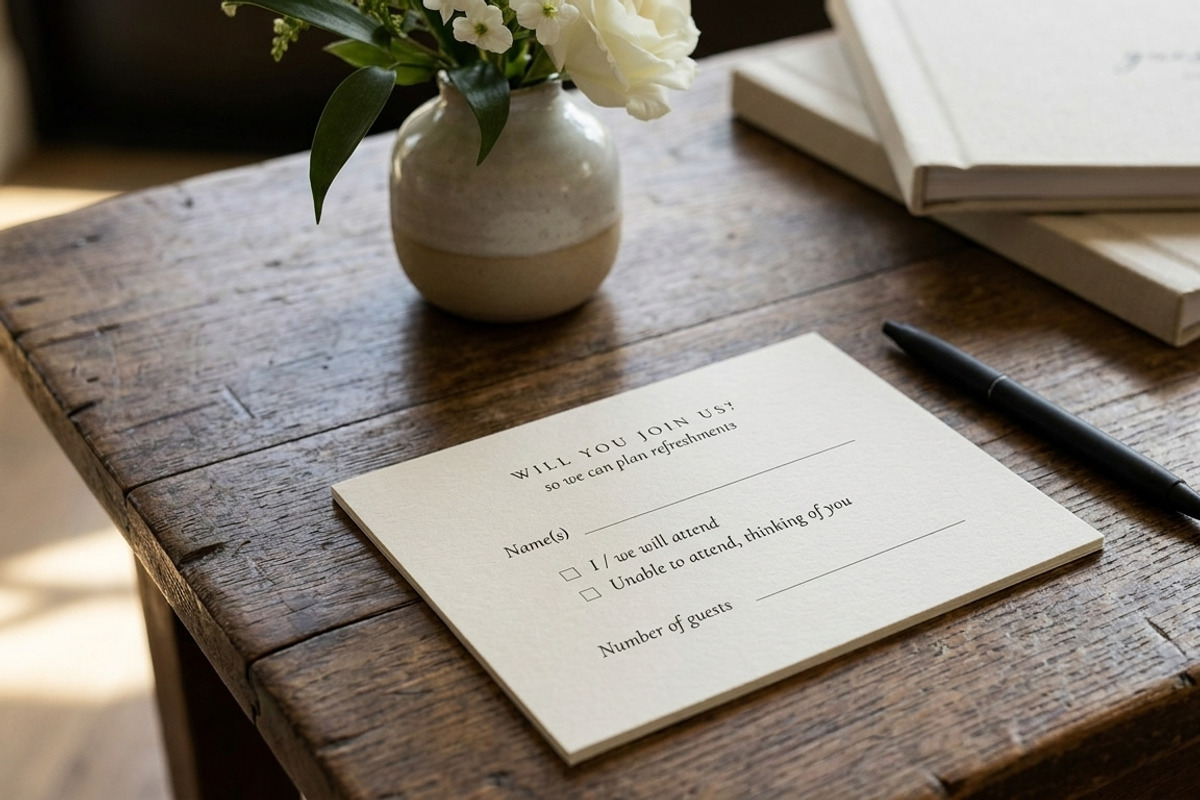 WILL YOU JOIN US?
so we can plan refreshments
Name(s)
I / we will attend
Unable to attend, thinking of you
Number of guests